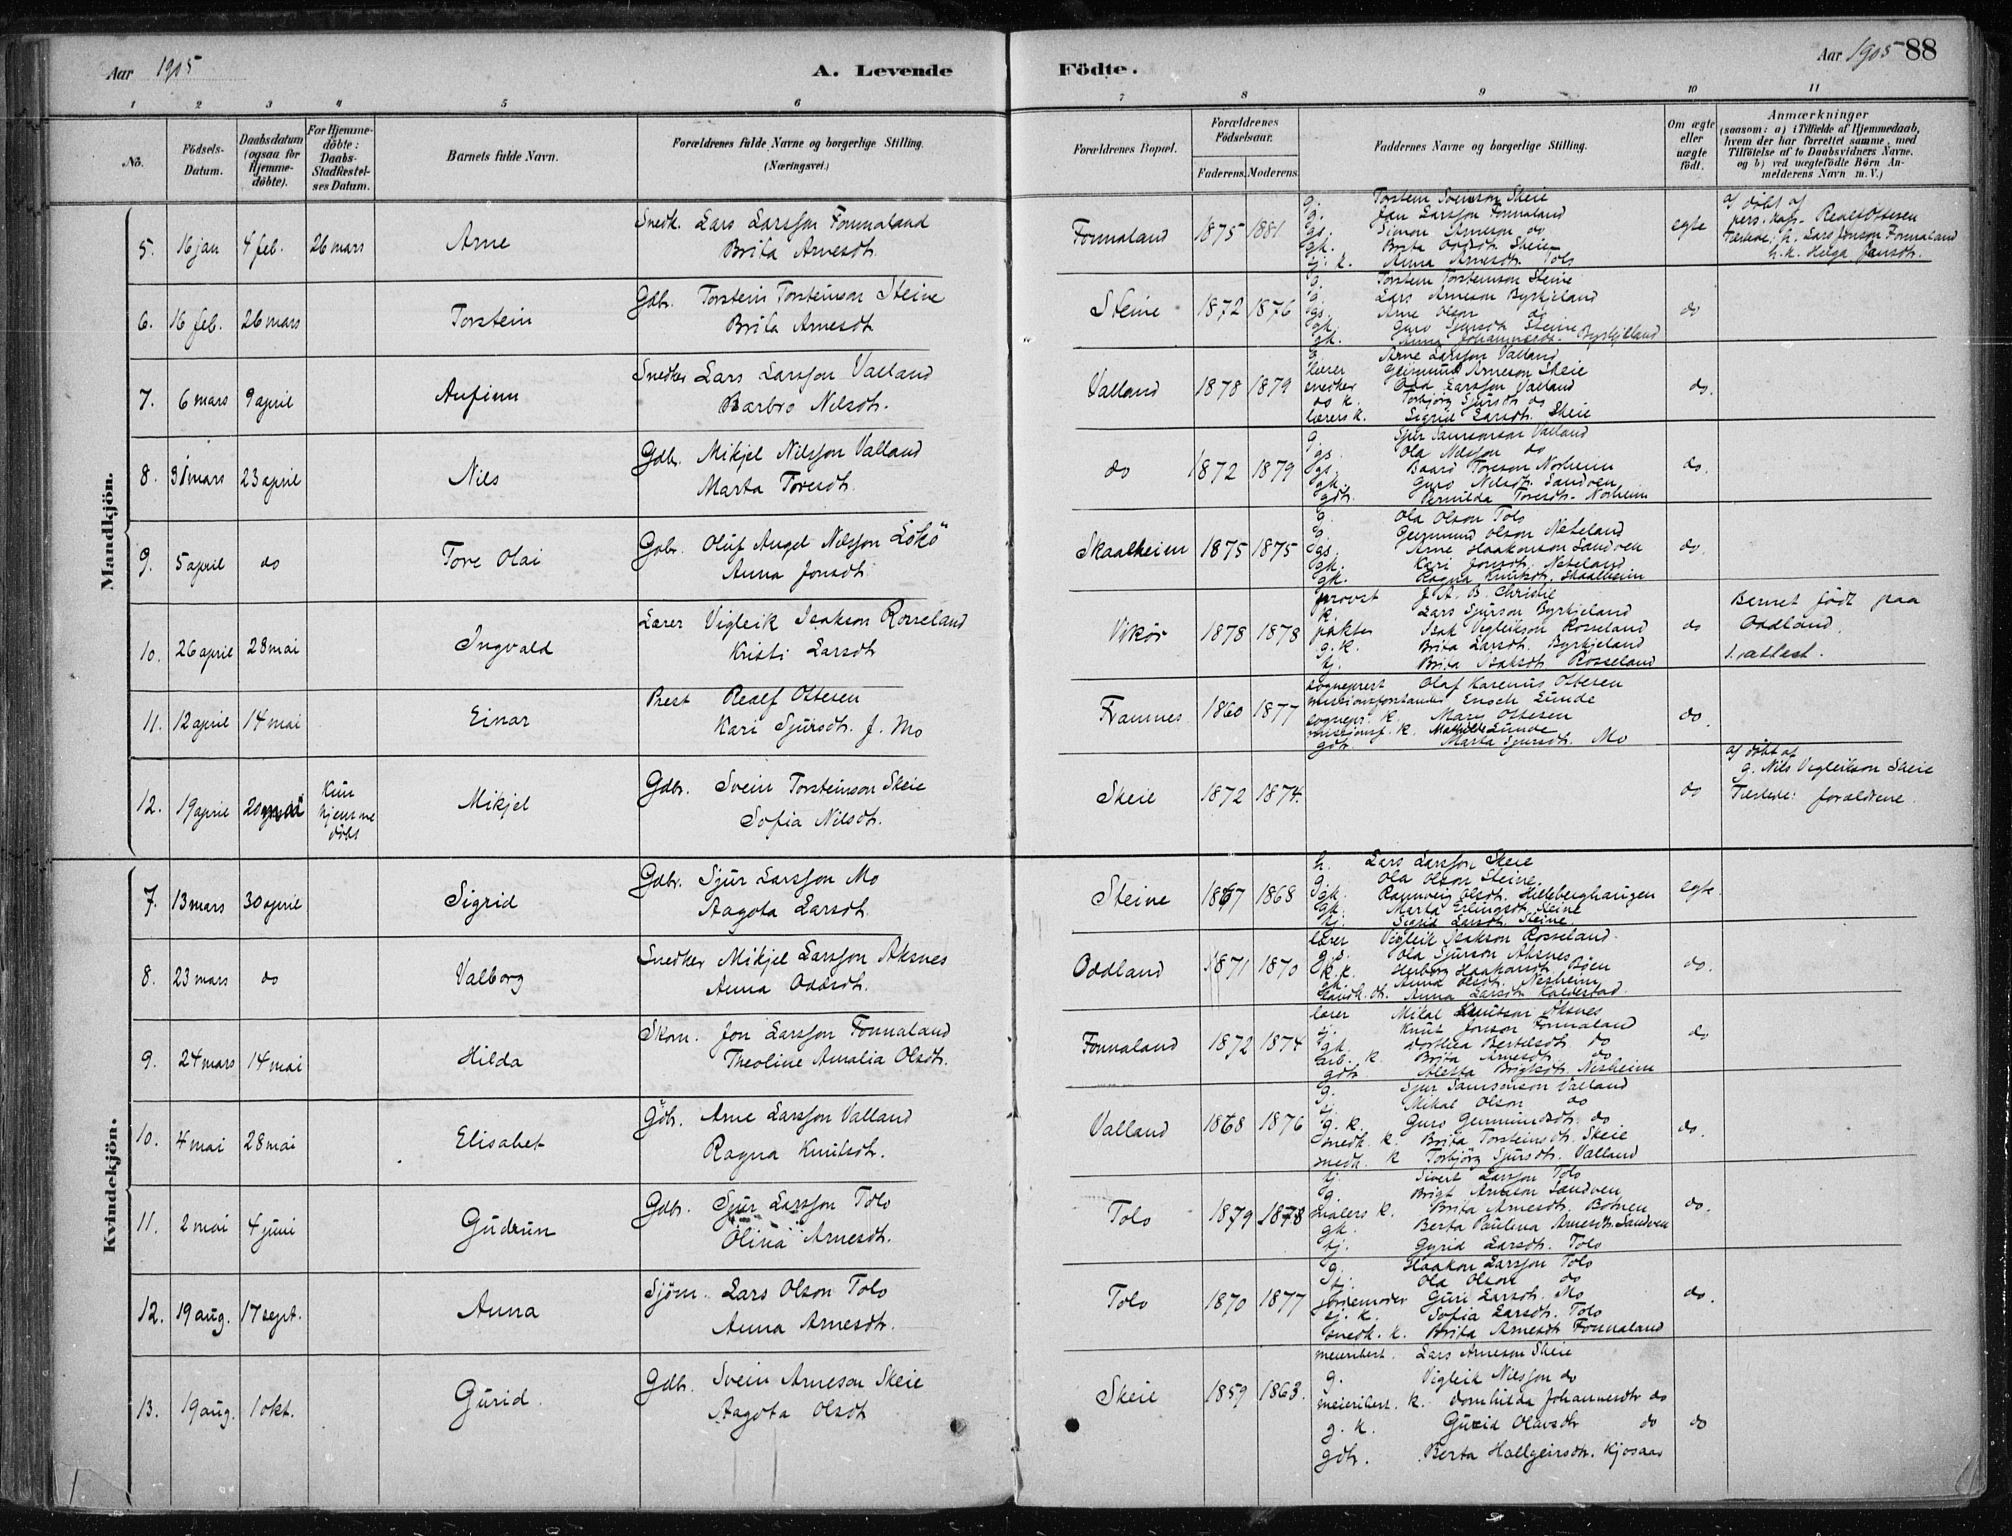 Aar 1905 A. Levende Födte. Aar 1905 88
1 2 3 4 5 6 7 8 9 10 11
No. Födsels-Datum. Daabsdatum (ogsaa for Hjemme-döbte). For Hjemme-döbte: Daabs-Stadfæstel-ses Datum. Barnets fulde Navn. Forældrenes fulde Navne og borgerlige Stilling. (Næringsvei.) Forældrenes Bopæl. Forældrenes Födselsaar. Faderens. Moderens. Faddernes Navne og borgerlige Stilling. Om ægte eller uægte födt. Anmærkninger (saasom: a) i Tilfælde af Hjemmedaab, hvem der har forrettet samme, med Tilföielse af to Daabsvidners Navne, og b) ved uægtefödte Börn An-melderens Navn m. V.)
Mandkjön.
5. 16 jan 4 feb. 26 mars Arne
Snedk. Lars Larsson Fonnaland
Brita Arnesdtr.
Fonnaland 1875 1881
g. Torstein Sveinson Skeie
g. Jon Larsson Fonnaland
gs. Simon Arneson do
gk. Brita Oddsdtr. Skeie
tj. k. Anna Arnesdtr. Tolo
egte
a) döbt af
pers. kap. Realf Ottesen
Tilstede: h. Lars Jonson Fonnaland
h. k. Helga Jonsdtr.
6. 16 feb. 26 mars Torstein
Gdbr. Torstein Torsteinson Steine
Brita Arnesdtr
Steine 1872 1876
g. Torstein Torsteinson Steine
g. Lars Arneson Byrkjeland
gs. Arne Olson do
gk. Guro Sjursdtr Steine
gk. Anna Johannesdtr. Byrkjeland
do
7. 6 mars 9 april Anfinn
Snedker Lars Larsson Valland
Barbro Nilsdtr.
Valland 1878 1879
g. Arne Larsson Valland
lærer Geirmund Arneson Skeie
snedker Odd Larsson Valland
do k. Torbjörg Sjursdtr do
lærers k. Sigrid Larsdtr. Skeie
do.
8. 31 mars 23 april Nils
Gdbr. Mikjel Nilsson Valland
Marta Toresdtr.
do 1872 1879
g. Sjur Samsonson Valland
gs. Ola Nilsson do
gs. Baard Toreson Norheim
gk. Guro Nilsdtr. Sandven
gdtr. Pernilda Toresdtr. Norheim
do.
9. 5 april do Tore Olai
Gdbr. Oluf Angel Nilsson Lökö
Anna Jonsdtr.
Skaalheim 1875 1875
g. Ola Olson Tolo
g. Geirmund Olson Neteland
gs. Arne Haakonson Sandven
gk. Kari Jonsdtr. Neteland
gk. Ragna Knutsdtr. Skaalheim
do.
10. 26 april 28 mai Ingvald
Lærer Vigleik Isakson Rosseland
Kristi Larsdtr
Vikör 1878 1878
provst J. A. B. Christie
k. Lars Sjurson Byrkjeland
Isak Vigleikson Rosseland
g. k. Brita Larsdtr. Byrkjeland
tj. Brita Isaksdtr. Rosseland
do
Barnet födt paa
Oddland.
11. 12 april 14 mai Einar
Prest Realf Ottesen
Kari Sjursdtr. f. Mo
Framnes 1860 1877
sogneprest Olaf Karenus Ottesen
missionsforstander Enoch Lunde
sognepr. k. Mary Ottesen
missionsf. k. Mathilde Lunde
gdtr Marta Sjursdtr. Mo
do.
12. 19 april 20 mai Kun hjemme döbt Mikjel
Gdbr. Svein Torsteinson Skeie
Sofia Nilsdtr.
Skeie 1872 1874.
do
a) döbt af
g. Nils Vigleikson Skeie
Tilstede: foræildrene.
Kvindekjön.
7. 13 mars 30 april Sigrid
Gdbr. Sjur Larsson Mo
Aagota Larsdtr.
Steine 1867 1868
h. Lars Larsson Skeie
g. Ola Olson Steine
gk. Rannveig Olsdtr. Hilleberghaugen
gk. Marta Erlingsdtr. Steine
tj. Sigrid Larsdtr. Steine
egte.
8. 23 mars do Valborg
Snedker Mikjel Larsson Aksnes
Anna Oddsdtr.
Oddland 1871 1870
lærer Vigleik Isakson Rosseland
g. s. Ola Sjurson Aksnes
k. k. Herborg Haakonsdtr. Böen
gk. Anna Olsdtr. Nesheim
Anna Larsdtr Kaldestad
do.
9. 24 mars 14 mai Hilda
Skom. Jon Larsson Fonnaland
Theoline Amalia Olsdtr.
Fonnaland 1872 1874
lærer Mikal Knutson Aksnes
tj. Knut Jonson Fonnaland
gk. Dorthea Bertelsdtr. do
arb. k. Brita Arnesdtr do
gdtr Aletta Brigtsdtr. Nesheim
do
10. 4 mai 28 mai Elisabet
Gdbr. Arne Larsson Valland
Ragna Knutsdtr.
Valland 1868 1876
g. Sjur Samsonson Valland
tj. Mikal Olson do
g. k. Guro Geirmundsdtr. do
snedk. k. Brita Torsteinsdtr. Skeie
snedk. k Torbjörg Sjursdtr. Valland
do.
11. 2 mai 4 juni Gudrun
Gdbr. Sjur Larsson Tolo
Olina Arnesdtr.
Tolo 1879 1878
tj. Sivert Larsson Tolo
g. Brigt Arneson Sandven
malers k. Brita Arnesdtr. Botnen
gk. Berta Paulina Arnesdtr. Sandven
tj. Gyrid Larsdtr. Tolo
do.
12. 19 aug. 17 sept. Anna
Sjöm. Lars Olson Tolo
Anna Arnesdtr.
Tolo 1870 1877
g. Haakon Larsson Tolo
tj. Ola Olson do
jordemoder Guri Larsdtr. Mo
tj. k. Sofia Larsdtr. Tolo
snedk. k. Brita Arnesdtr Fonnaland
do.
13. 19 aug. 1 okt. Gurid.
Gdbr. Svein Arneson Skeie
Aagota Olsdtr
Skeie 1859 1863.
meieribest. Lars Arneson Skeie
g. Vigleik Nilsson do
meieribest. k. Bornhilda Johannesdtr do
g. k. Gurid Olavsdtr do
gdtr. Berta Hallgeirsdtr. Kjosaas
do